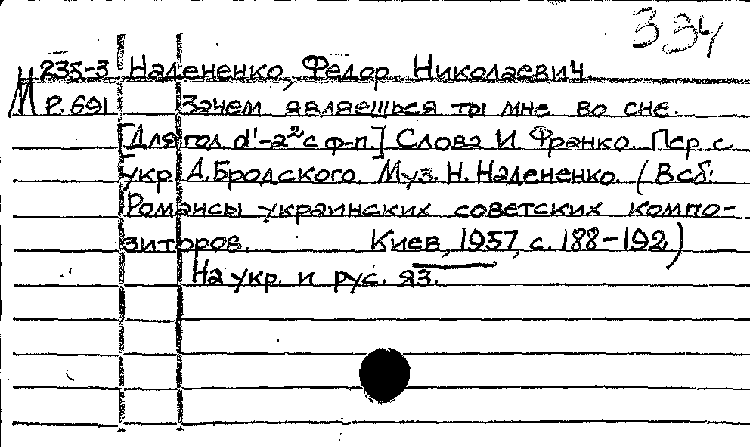 334
М 235-3 Надененко, Федор Николаевич
Р. 691 Зачем являешься ты мне во сне.
[Для гол. d'-a² с ф-п.] Слова И Франко. Пер. с
укр А. Бродского. Муз. Н. Надененко. (В сб:
Романсы украинских советских компо-
зиторов. Киев, 1957, с. 188-192)
На укр. и рус. яз.